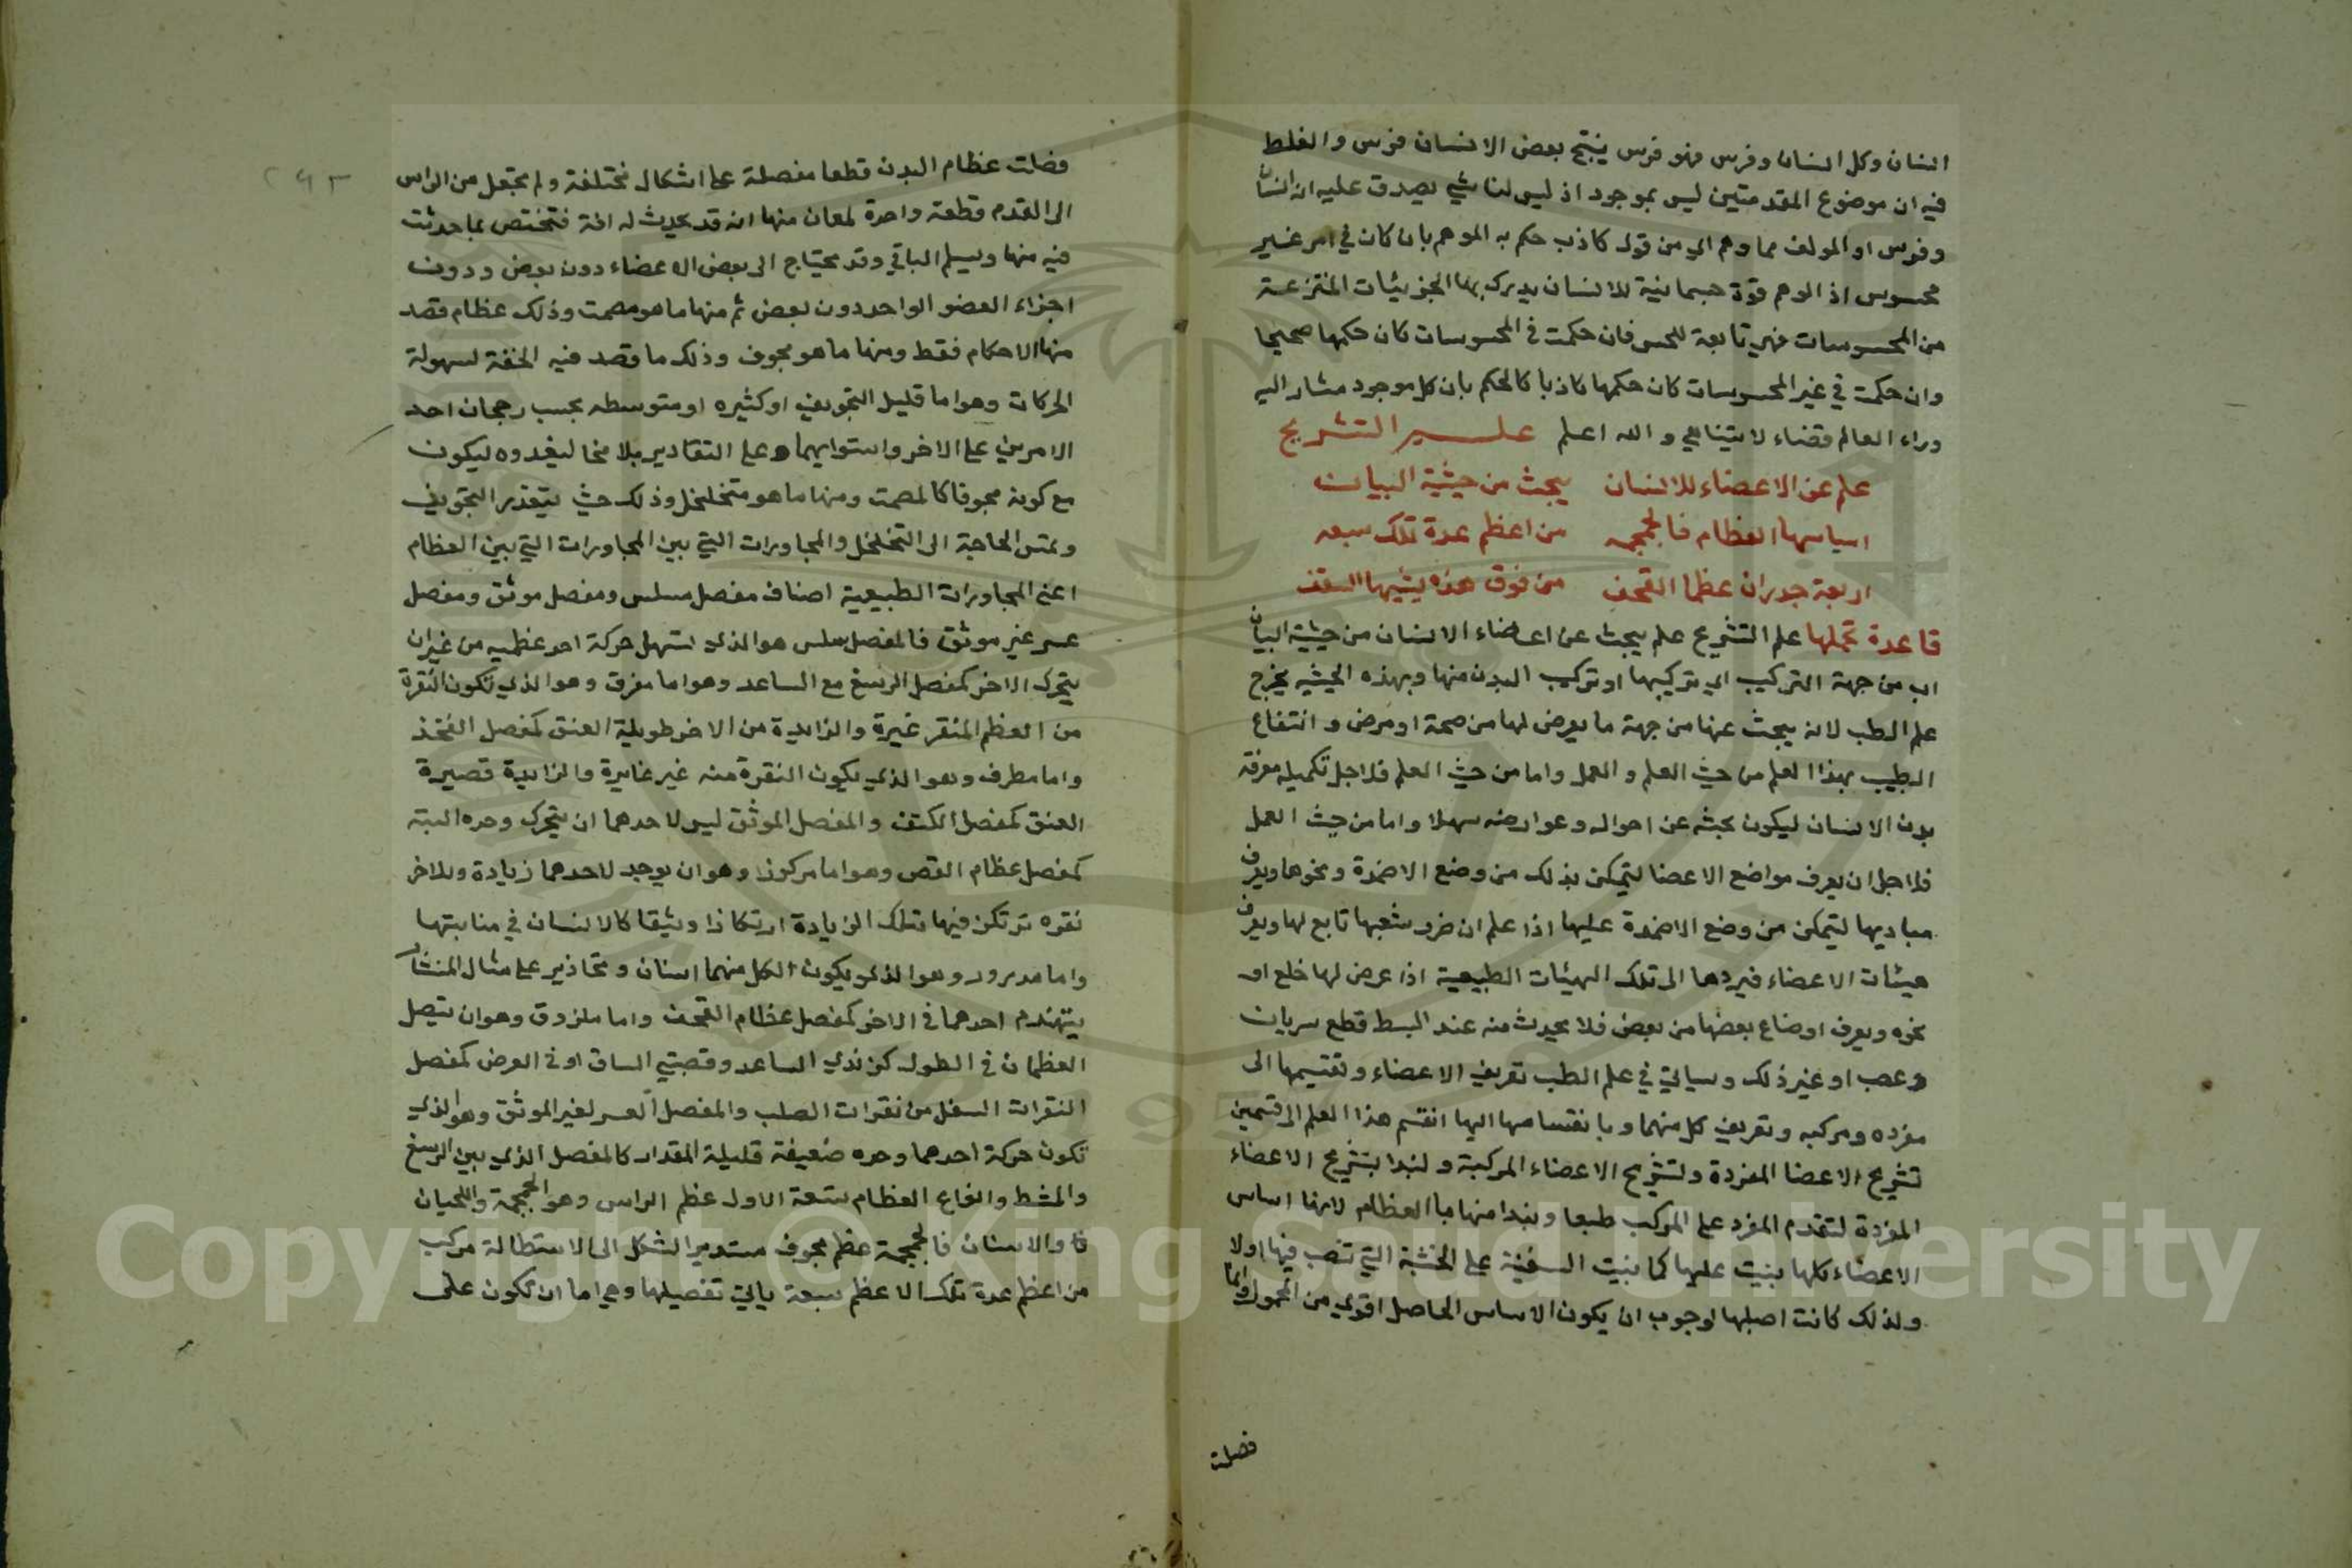 انسان وكل انسان وفرس فهو فرس ينتج بعض الانسان فرس والغلط
فيه ان موضوع المقدمتين ليس بموجود اذ ليس لنا شي يصدق عليه انه انسان
وفرس او المولف مما وهم اي من قول كاذب حكم به الوهم بان كان في امر غير
محسوس اذ الوهم قوة جسمانية للانسان يدرك بها الجزئيات المنتزعة
من المحسوسات فهي تابعة للحس فان حكمت في المحسوسات كان حكمها صحيحا
وان حكمت في غير المحسوسات كان حكمها كاذبا كالحكم بان كل موجود مشار اليه
وراء العالم فضاء لا يتناهي والله اعلم علم التشريح
علم عن الاعضاء للانسان يبحث من حيثية البيان
اساسها العظام فالجمجمه من اعظم عدة تلك سبعه
اربعة جدران عظما القحف من فوق هذه يشيهما السقف
قاعدة تحملها علم التشريح علم يبحث عن اعضاء الانسان من حيثية البيان
اي من جهة التركيب اي تركيبها او تركيب البدن منها وبهذه الحيثيه يخرج
علم الطب لانه يبحث عنها من جهة ما يعرض لها من صحة او مرض وانتفاع
الطبيب بهذا العلم من حيث العلم والعمل واما من حيث العلم فلاجل تكميله معرفة
بدن الانسان ليكون بحثه عن احواله وعوارضه سهلا واما من حيث العمل
فلاجل ان يعرف مواضع الاعضا ليتمكن بذلك من وضع الاضمدة ونحوها ويعرف
مباديها ليتمكن من وضع الاضمدة عليها اذا علم ان ضرر شعبها تابع لها ويعرف
هيئات الاعضاء فيردها الى تلك الهيئات الطبيعية اذا عرض لها خلع او
نحوه ويعرف اوضاع بعضها من بعض فلا يحدث منه عند البسط قطع شريان
وعصب او غير ذلك وسياتي في علم الطب تعريف الاعضاء وتقسيمها الى
مفرده ومركبه وتعريف كل منهما وبانقسامها اليها انقسم هذا العلم الى قسمين
تشريح الاعضا المفردة وتشريح الاعضاء المركبة ولنبدا بتشريح الاعضاء
المفردة لتقدم المفرد على المركب طبعا ونبدا منها بالعظام لانها اساس
الاعضاء كلها بنيت عليها كما بنيت السفينة على الخشبة التي تنصب فيها اولا
ولذلك كانت اصلبها لوجوب ان يكون الاساس الحامل اقوي من المحمول وانما
فصلت
فصلت عظام البدن قطعا مفصلة على اشكال مختلفة ولم تجعل من الراس
الى القدم قطعة واحدة لمعان منها انه قد يحدث له افة فتختص بما حدثت
فيه منها ويسلم الباقي وقد يحتاج الى بعض الاعضاء دون بعض ودون
اجزاء العضو الواحد دون بعض ثم منها ما هو مصمت وذلك عظام قصد
منها الاحكام فقط ومنها ما هو مجوف وذلك ما قصد فيه الخفة لسهولة
الحركات وهو اما قليل التجويف او كثيره او متوسطه بحسب رجحان احد
الامرين على الاخر واستوايهما وعلى التقادير بلا مخا ليغدوه ليكون
مع كونه مجوفا كالمصمت ومنها ما هو متخلخل وذلك حيث يتعذر التجويف
وتمس الحاجة الى التخلخل والمجاورات التي بين المجاورات التي بين العظام
اعني المجاورات الطبيعية اصناف مفصل سلس ومفصل موثق ومفصل
عسر غير موثق فالمفصل سلس هو الذي تسهل حركة احد عظميه من غير ان
يتحرك الاخر كمفصل الرسغ مع الساعد وهو اما مغرق وهو الذي تكون النقرة
من العظم المنقر غيرة والزايدة من الاخر طويلة العنق كمفصل الفخذ
واما مطرف وهو الذي يكون النقرة منه غير غايرة والزايدة قصيرة
العنق كمفصل الكتف والمفصل الموثق ليس لاحدهما ان يتحرك وحده البته
كمفصل عظام القص وهو اما مركوز وهو ان يوجد لاحدهما زيادة وللاخر
نقره ترتكز فيها تلك الزيادة ارتكازا وثيقا كالانسان في منابتها
واما مدروز وهو الذي يكون لكل منهما اسنان وتحازير على مثال المنشار
يتهندم احدهما في الاخر كمفصل عظام القحف واما ملزوق وهو ان يتصل
العظمان في الطول كزندي الساعد وقصبتي الساق او في العرض كمفصل
الفقرات السفل من فقرات الصلب والمفصل العسر لغير الموثق وهو الذي
تكون حركة احدهما وحده ضعيفة قليلة المقدار كالمفصل الذي بين الرسغ
والمشط وانواع العظام ستعة الاول عظم الراس وهو الجمجمة واللحيان
والاسنان فالجمجمة عظم مجوف مستدير الشكل الى الاستطالة مركب
من اعظم عدة تلك الاعظم سبعة ياتي تفصيلها وهي اما ان تكون على
Copyright © King Saud University
1957